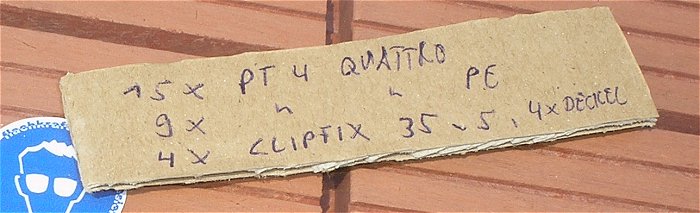 15 x PT 4 QUATTRO
9 x " " PE
4 x CLIPFIX 35 - 5, 4 x DECKEL